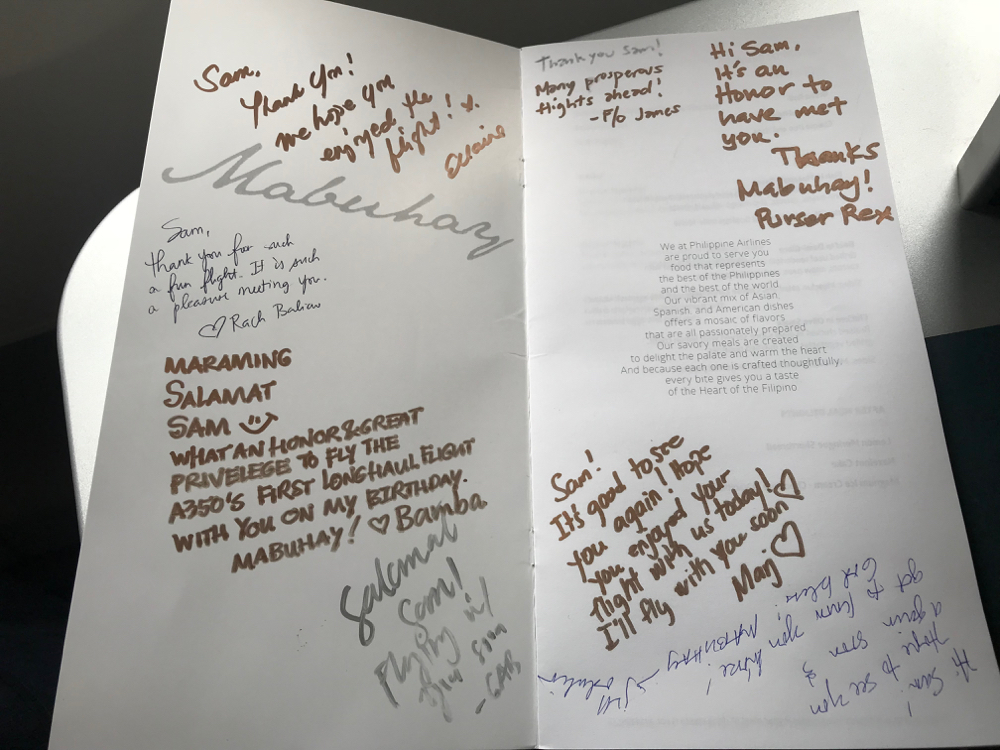 Sam,
Thank You!
We hope you
enjoyed the
flight!
Mabuhay
Sam,
thank you for such
a fun flight. It is such
a pleasure meeting you.
♡ Rach
MARAMING
SALAMAT
SAM
WHAT AN HONOR & GREAT
PRIVELEGE TO FLY THE
A350'S FIRST LONGHAUL FLIGHT
WITH YOU ON MY BIRTHDAY.
MABUHAY! ♡ Bamba
Salamat
Sam!
Fly w/
soon
-GAB
Thank you Sam!
Many prosperous
flights ahead!
- F/O James
Hi Sam,
It's an
Honor to
have met
you.
Thanks
Mabuhay!
Purser Rex
We at Philippine Airlines
are proud to serve you
food that represents
the best of the Philippines
and the best of the world.
Our vibrant mix of Asian,
Spanish, and American dishes
offers a mosaic of flavors
that are all passionately prepared.
Our savory meals are created
to delight the palate and warm the heart.
And because each one is crafted thoughtfully,
every bite gives you a taste
of the Heart of the Filipino
Sam!
It's good to see
you again! I hope
you enjoyed your
flight with us today! ♡
I'll fly with you soon
♡
Maj
Hi Sam!
Hope to see you
again soon &
get to know you more!
God bless!
MABUHAY